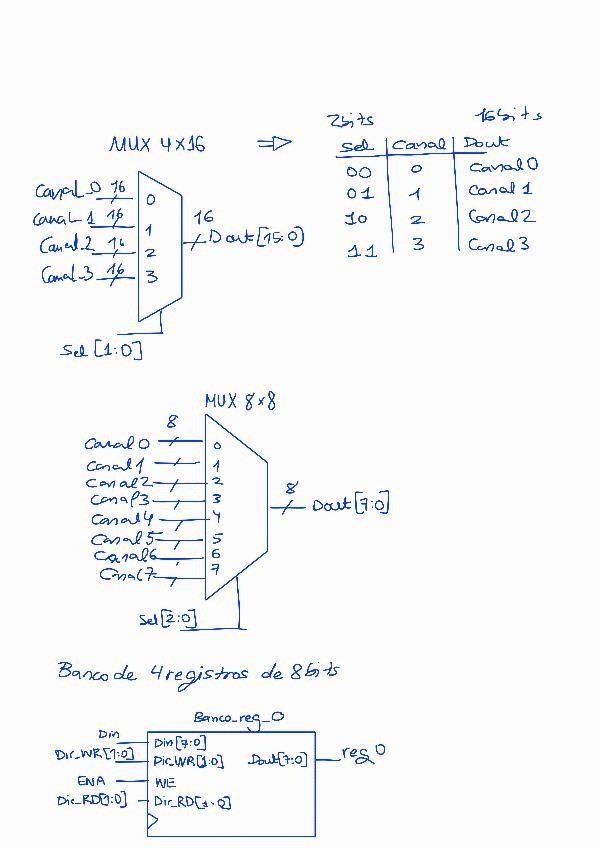 2bits 16bits
MUX 4x16 ⇒ Sel Canal Dout
00 0 Canal 0
01 1 Canal 1
10 2 Canal 2
11 3 Canal 3
Canal_0 16 0
Canal_1 16 1
Canal_2 16 2
Canal_3 16 3
16
Dout [15:0]
Sel [1:0]
MUX 8x8
8
Canal0 0
Canal1 1
Canal2 2
Canal3 3
Canal4 4
Canal5 5
Canal6 6
Canal7 7
8
Dout [7:0]
Sel[2:0]
Banco de 4 registros de 8bits
Banco_reg_0
Din Din[7:0]
Dir_WR[1:0] Dir_WR[1:0] Dout[7:0] reg0
ENA WE
Dir_RD[1:0] Dir_RD[1:0]